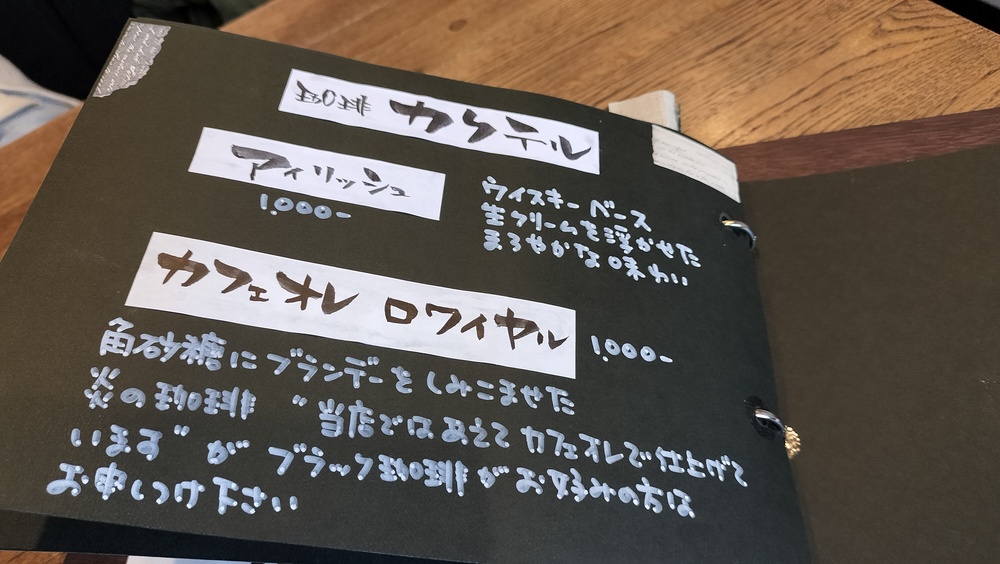 珈琲 カクテル
アイリッシュ
1,000-
ウイスキーベース
生クリームを浮かせた
まろやかな味わい
カフェオレ ロワイヤル
1,000-
角砂糖にブランデーをしみこませた
炎の珈琲 "当店ではあえてカフェオレで仕上げて
います" が ブラック珈琲がお好みの方は
お申しつけ下さい